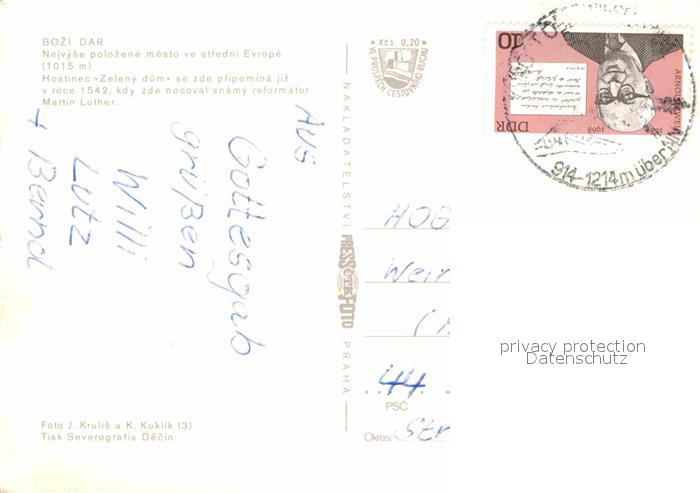 BOŽÍ DAR
Nejvýše položené město ve střední Evropě
(1015 m)
Hostinec »Zelený dům« se zde připomíná již
v roce 1542, kdy zde nocoval známý reformátor
Martin Luther.
Aus
Gottesgab
grüßen
Willi
Lutz
+ Bernd
Foto J. Kruliš a K. Kuklík (3)
Tisk Severografia Děčín
Kčs 0,20
VE PROSPĚCH CESTOVNÍHO RUCHU
NAKLADATELSTVÍ
PRESSFOTO
PRAHA
10
DDR
1968
914-1214m über NN
HOG
Wei
44
PSČ
Okres:
privacy protection
Datenschutz